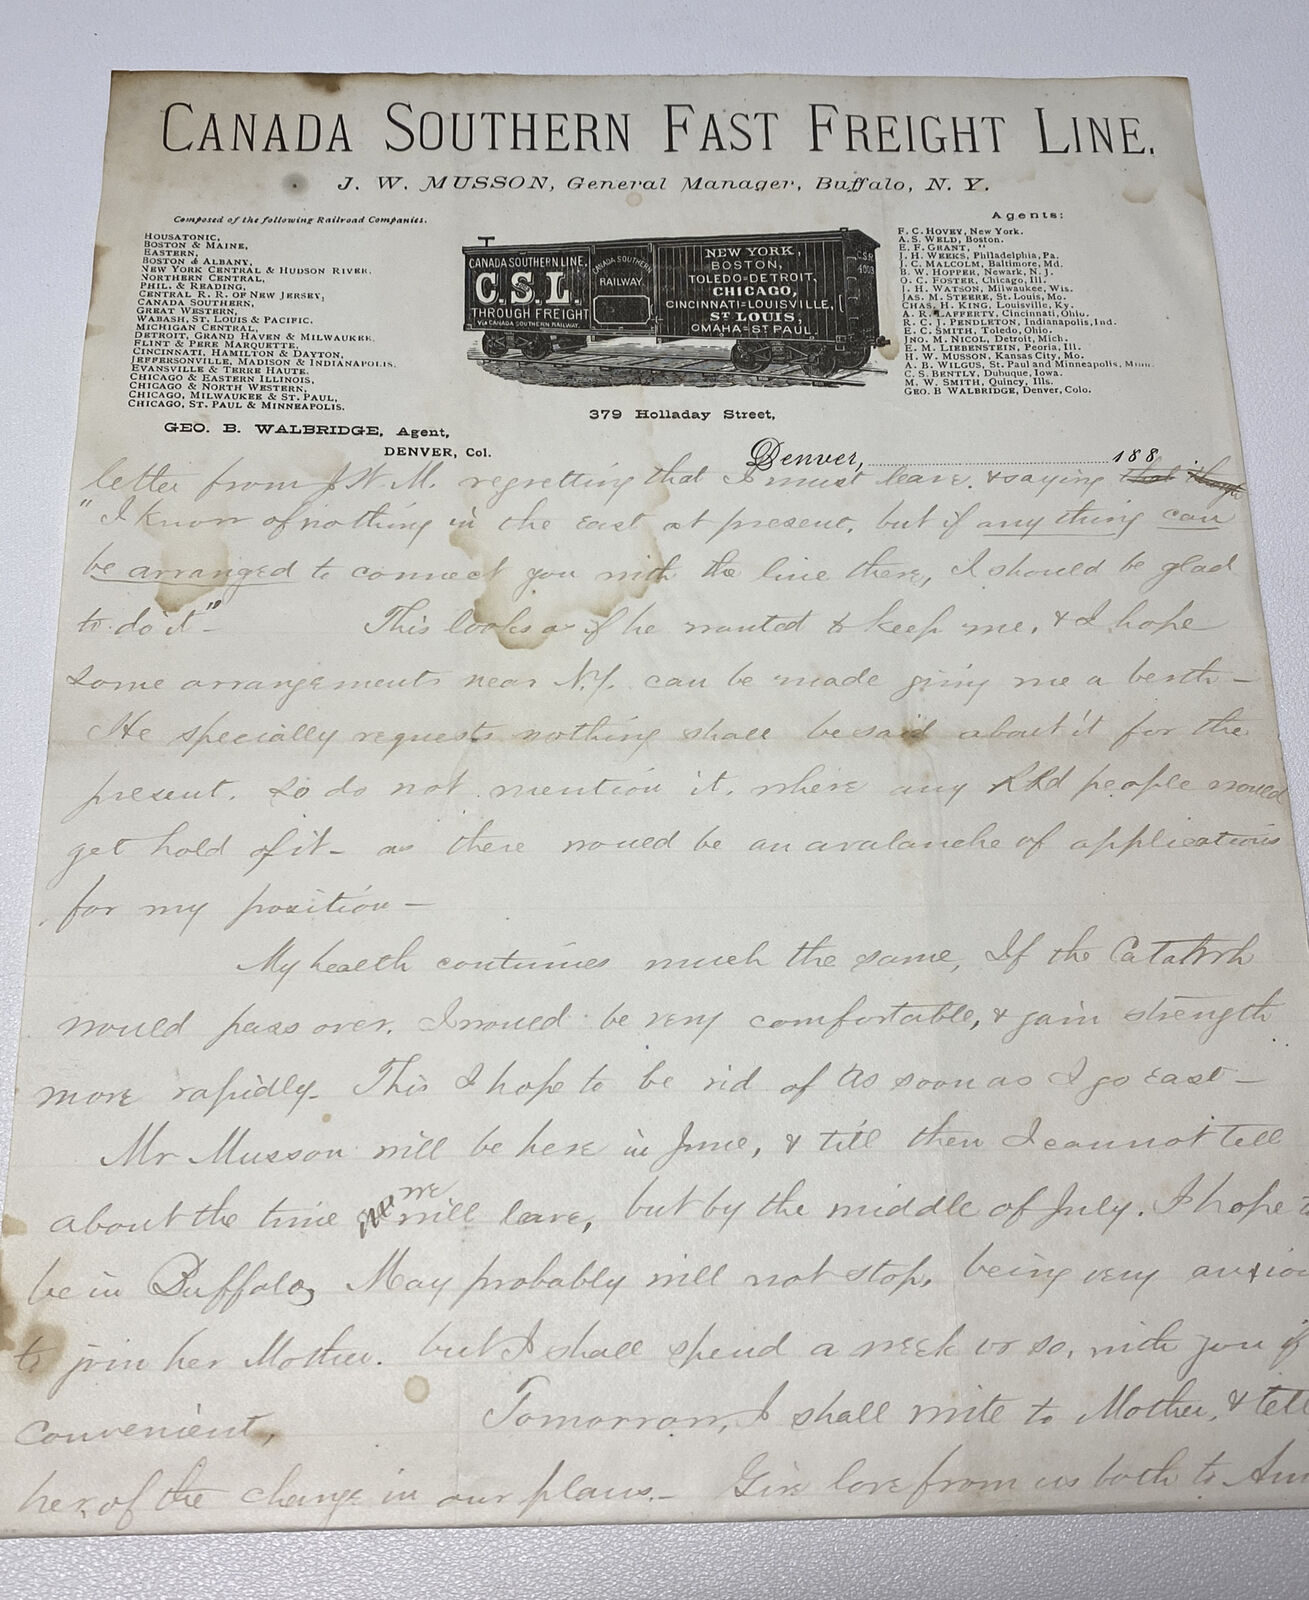 CANADA SOUTHERN FAST FREIGHT LINE.
J. W. MUSSON, General Manager, Buffalo, N. Y.
Composed of the following Railroad Companies.
HOUSATONIC,
BOSTON & MAINE,
EASTERN,
BOSTON & ALBANY,
NEW YORK CENTRAL & HUDSON RIVER,
NORTHERN CENTRAL,
PHIL. & READING,
CENTRAL R. R. OF NEW JERSEY,
CANADA SOUTHERN,
GREAT WESTERN,
WABASH, ST. LOUIS & PACIFIC,
MICHIGAN CENTRAL,
DETROIT, GRAND HAVEN & MILWAUKEE,
FLINT & PERE MARQUETTE,
CINCINNATI, HAMILTON & DAYTON,
JEFFERSONVILLE, MADISON & INDIANAPOLIS,
EVANSVILLE & TERRE HAUTE,
CHICAGO & EASTERN ILLINOIS,
CHICAGO & NORTH WESTERN,
CHICAGO, MILWAUKEE & ST. PAUL,
CHICAGO, ST. PAUL & MINNEAPOLIS.
GEO. B. WALBRIDGE, Agent,
DENVER, Col.
CANADA SOUTHERN LINE.
C.S.L.
THROUGH FREIGHT
VIA CANADA SOUTHERN RAILWAY.
CANADA SOUTHERN
RAILWAY.
NEW YORK,
BOSTON,
TOLEDO=DETROIT,
CHICAGO,
CINCINNATI=LOUISVILLE,
ST LOUIS,
OMAHA=ST PAUL.
C.S.R.
4003
379 Holladay Street,
Agents:
F. C. HOVEY, New York.
A. S. WELD, Boston.
E. F. GRANT, "
J. H. WEEKS, Philadelphia, Pa.
I. C. MALCOLM, Baltimore, Md.
B. W. HOPPER, Newark, N. J.
O. C. FOSTER, Chicago, Ill.
I. H. WATSON, Milwaukee, Wis.
JAS. M. STEERE, St. Louis, Mo.
CHAS. H. KING, Louisville, Ky.
A. R. LAFFERTY, Cincinnati, Ohio.
R. C. J. PENDLETON, Indianapolis, Ind.
E. C. SMITH, Toledo, Ohio.
JNO. M. NICOL, Detroit, Mich.
E. M. LIEBENSTEIN, Peoria, Ill.
H. W. MUSSON, Kansas City, Mo.
A. B. WILGUS, St. Paul and Minneapolis, Minn.
C. S. BENTLY, Dubuque, Iowa.
M. W. SMITH, Quincy, Ills.
GEO. B WALBRIDGE, Denver, Colo.
Denver, 188
letter from J. W. M. regretting that I must leave. & saying that though
"I know of nothing in the east at present, but if any thing can
be arranged to connect you with the line there, I should be glad
to do it" - This looks as if he wanted to keep me, & I hope
some arrangements near N.Y. can be made giving me a berth -
He specially requests nothing shall be said about it for the
present. so do not mention it, where any RRd people would
get hold of it - as there would be an avalanche of applications
for my position -
My health continues much the same, If the Catarrh
would pass over, I would be very comfortable, & gain strength
more rapidly. This I hope to be rid of as soon as I go east -
Mr Musson will be here in June, & till then I cannot tell
about the time we will leave, but by the middle of July. I hope
be in Buffalo, May probably will not stop, being very anxiou
to join her Mother. but I shall spend a week or so, with you if
convenient, Tomorrow, I shall write to Mother, & tell
her of the change in our plans. - Give love from us both to